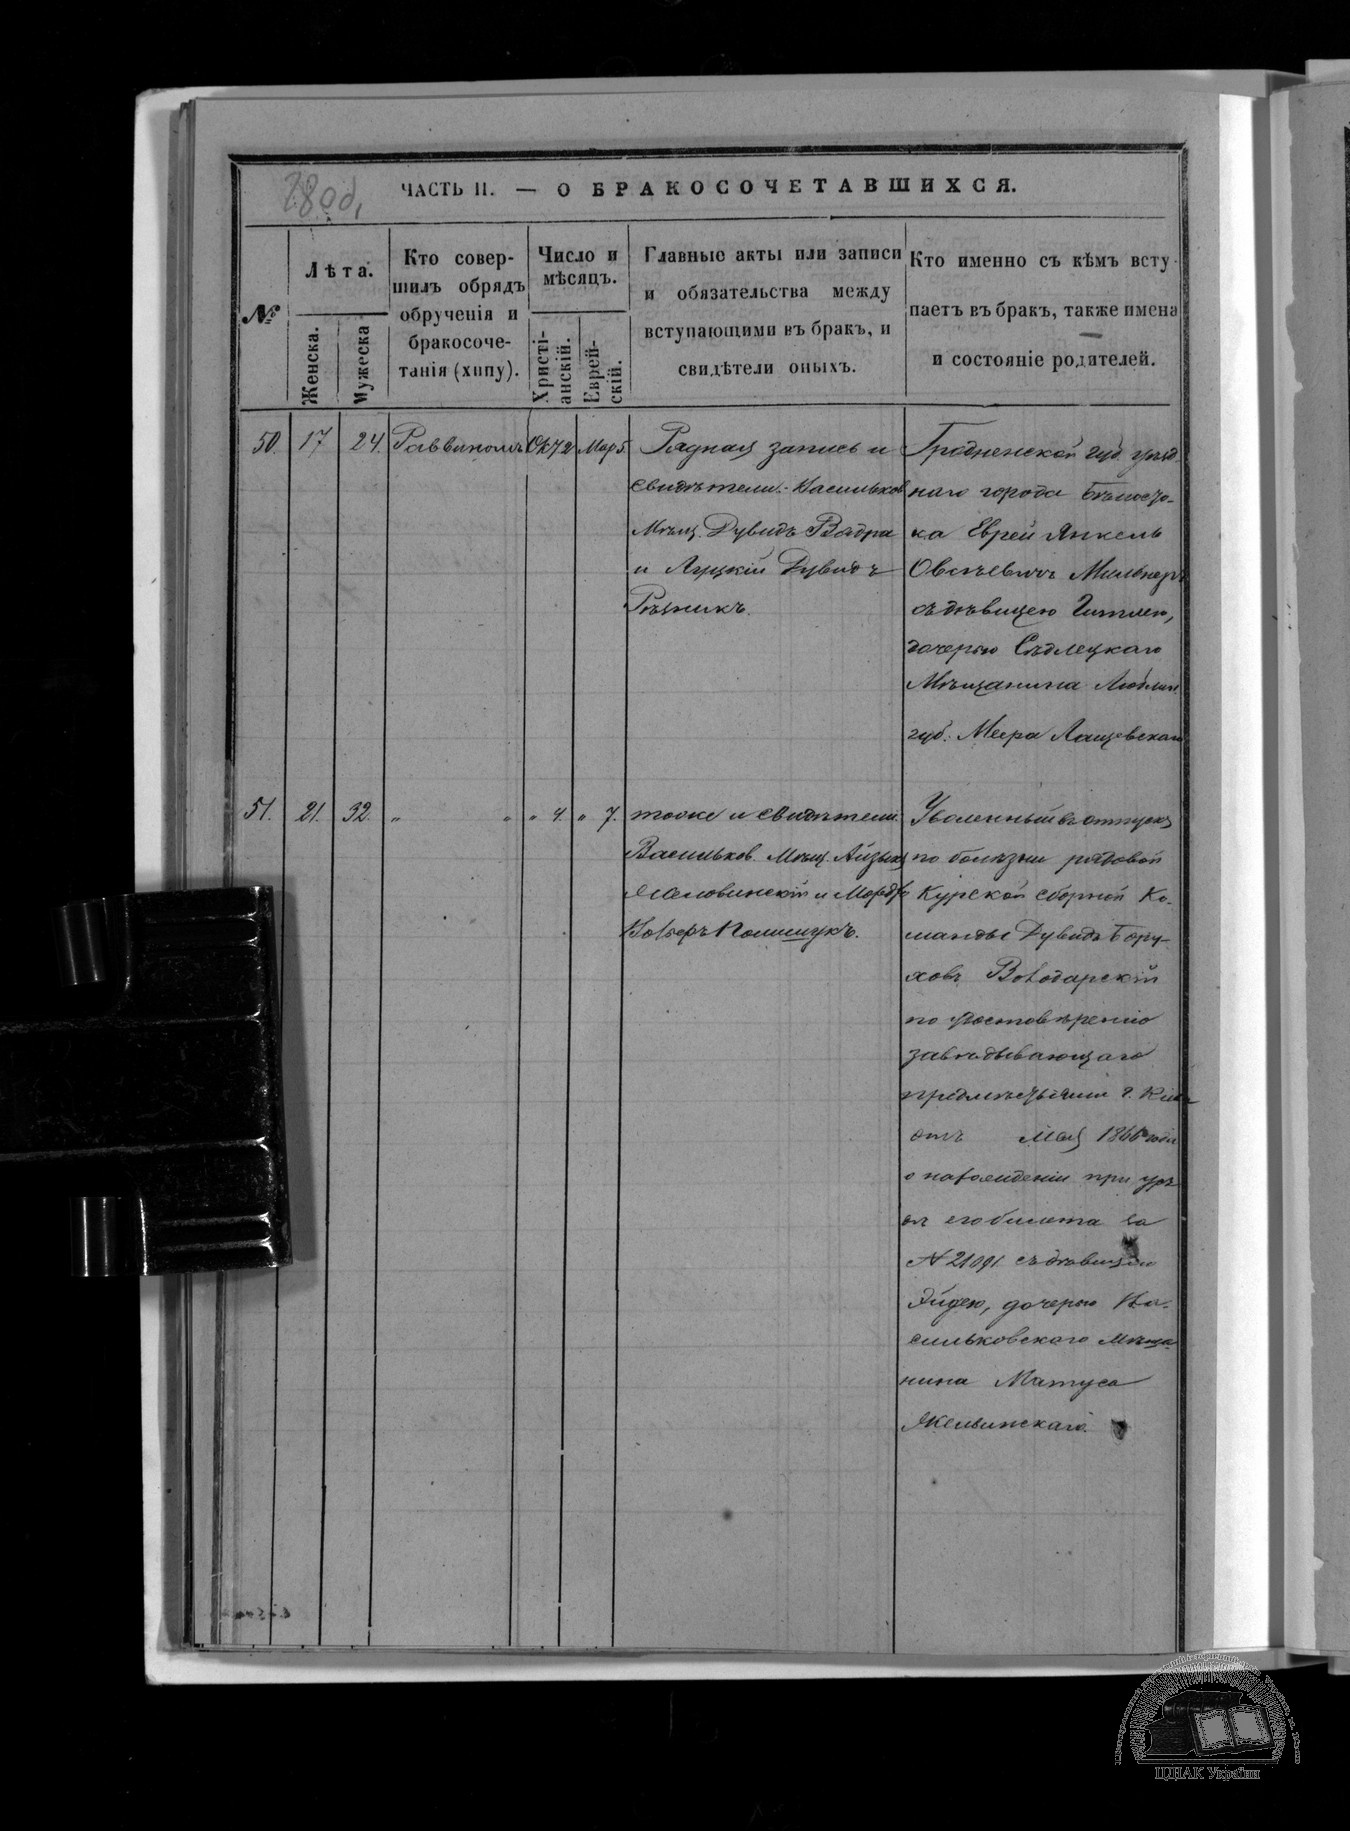 280б,
ЧАСТЬ II. — О БРАКОСОЧЕТАВШИХСЯ.
№
Лѣта.
Женска.
Мужеска
Кто совер-
шилъ обрядъ
обрученія и
бракосоче-
танія (хипу).
Число и
мѣсяцъ.
Христі-
анскій.
Еврей-
скій.
Главные акты или записи
и обязательства между
вступающими въ бракъ, и
свидѣтели оныхъ.
Кто именно съ кѣмъ всту-
паетъ въ бракъ, также имена
и состояніе родителей.
50. 17 24. Раввиномъ Окт 2 Мар 5
Рядная запись и
свидѣтели:- Васильков
Мѣщ. Дувидъ Вядра
и Луцкій Дувидъ
Рѣзникъ.
Гродненской губ. уѣзд-
наго города Бѣлосто-
ка Еврей Янкель
Овсѣевичъ Мильнеръ
съ дѣвицею Гитлею,
дочерью Сѣдлецкаго
Мѣщанина Люблин
губ. Меера Лащевскаго
51. 21. 32. " " " 4. " 7.
тоже и свидѣтели
Васильков. Мѣщ. Айзикъ
и Мордко
Полищукъ.
Уволенный въ отпускъ
по болѣзни рядовой
Курской сборной Ко-
манды Дувидъ Бору-
ховъ Володарскій
по удостовѣренію
завѣдывающаго
предмѣстьями г. Кіева
отъ Мая 1866 года
о нахожденіи при
его билета за
№ 21091 съ дѣвицею
дочерью Ва-
сильковскаго мѣща-
нина Матуса
ЦДІАК України